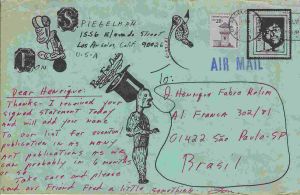 SPIEGELMAN
1556 Elevado Street
Los Angeles, Calif. 90026
U-S-A
LON
AIR MAIL
To:
Dear Henrique:
Thanks- I received your
signed statement Today
and will add your name
To our list for eventual
publication in as many
art publications as we
can probably in 6 months
or so.
Take care and please
send our Friend Fred a little something.
Lon
A Henrique Fabre Rolim
Al. Franca 302/81
01422 São Paulo-SP
Brasil